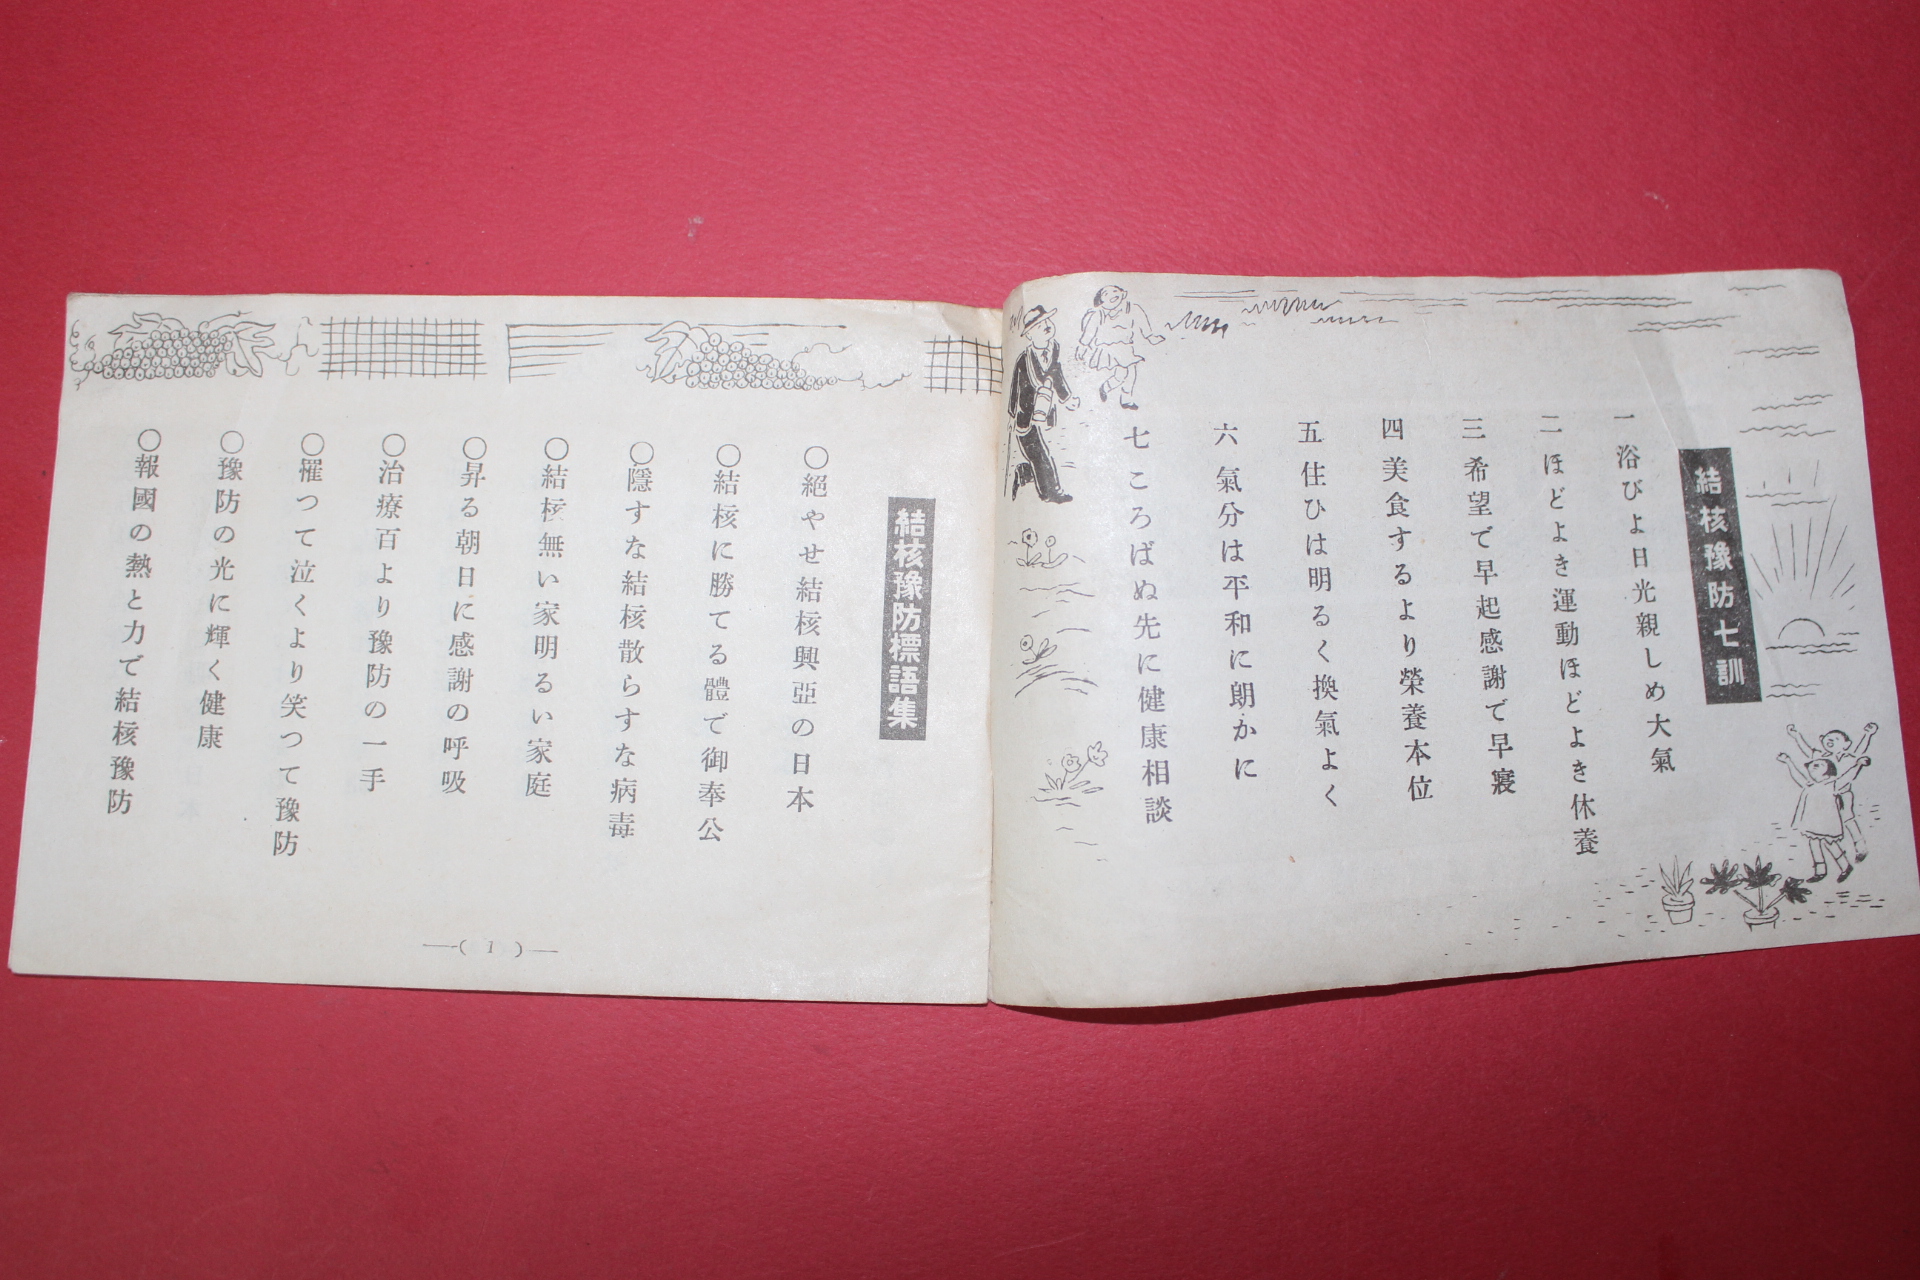 結核豫防七訓
一 浴びよ日光親しめ大氣
二 ほどよき運動ほどよき休養
三 希望で早起感謝で早寢
四 美食するより榮養本位
五 住ひは明るく換氣よく
六 氣分は平和に朗かに
七 ころばぬ先に健康相談
結核豫防標語集
○絕やせ結核興亞の日本
○結核に勝てる體で御奉公
○隱すな結核散らすな病毒
○結核無い家明るい家庭
○昇る朝日に感謝の呼吸
○治療百より豫防の一手
○罹つて泣くより笑つて豫防
○豫防の光に輝く健康
○報國の熱と力で結核豫防
―( 1 )―